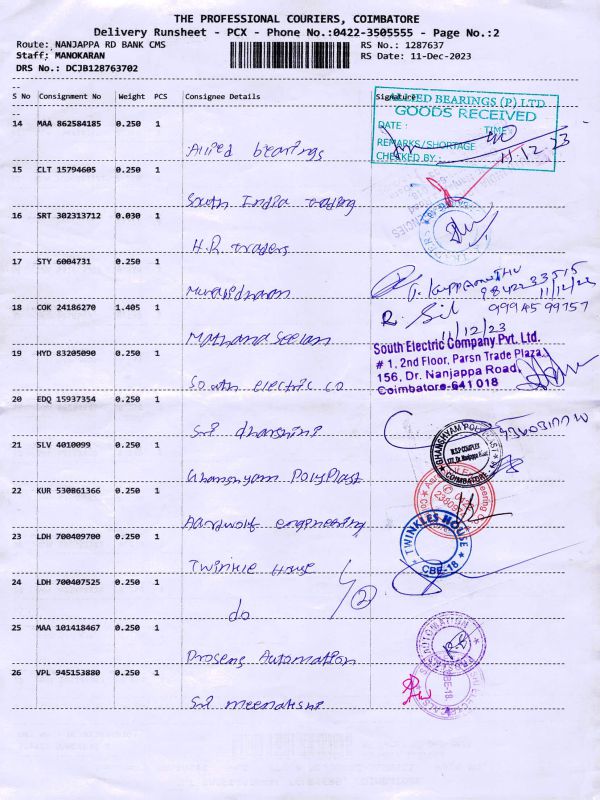 THE PROFESSIONAL COURIERS, COIMBATORE
Delivery Runsheet - PCX - Phone No.:0422-3505555 - Page No.:2
Route: NANJAPPA RD BANK CMS
RS No.: 1287637
Staff: MANOKARAN
RS Date: 11-Dec-2023
DRS No.: DCJB128763702
S No Consignment No Weight PCS Consignee Details Signature
ALLIED BEARINGS (P) LTD
GOODS RECEIVED
DATE : TIME :
REMARKS/SHORTAGE
CHECKED BY :
11.12.23
14 MAA 862584185 0.250 1
Allied bearings
15 CLT 15794605 0.250 1
South India trading
16 SRT 302313712 0.030 1
H.R. traders
17 STY 6004731 0.250 1
9842233515
11/12/23
18 COK 24186270 1.405 1
99945 99757
11/12/23
19 HYD 83205090 0.250 1
South electric co
South Electric Company Pvt. Ltd.
# 1, 2nd Floor, Parsn Trade Plaza,
156, Dr. Nanjappa Road,
Coimbatore-641 018
20 EDQ 15937354 0.250 1
Sri dharshini
21 SLV 4010099 0.250 1
Ghanshyam Polyplast
GHANSHYAM POLYPLAST
COIMBATORE
22 KUR 530861366 0.250 1
Aardwolf engineering
23 LDH 700409700 0.250 1
Twinkle House
TWINKLES HOUSE
CBE-18
24 LDH 700407525 0.250 1
do
25 MAA 101418467 0.250 1
Prosens Automation
26 VPL 945153880 0.250 1
Sri meenatshi